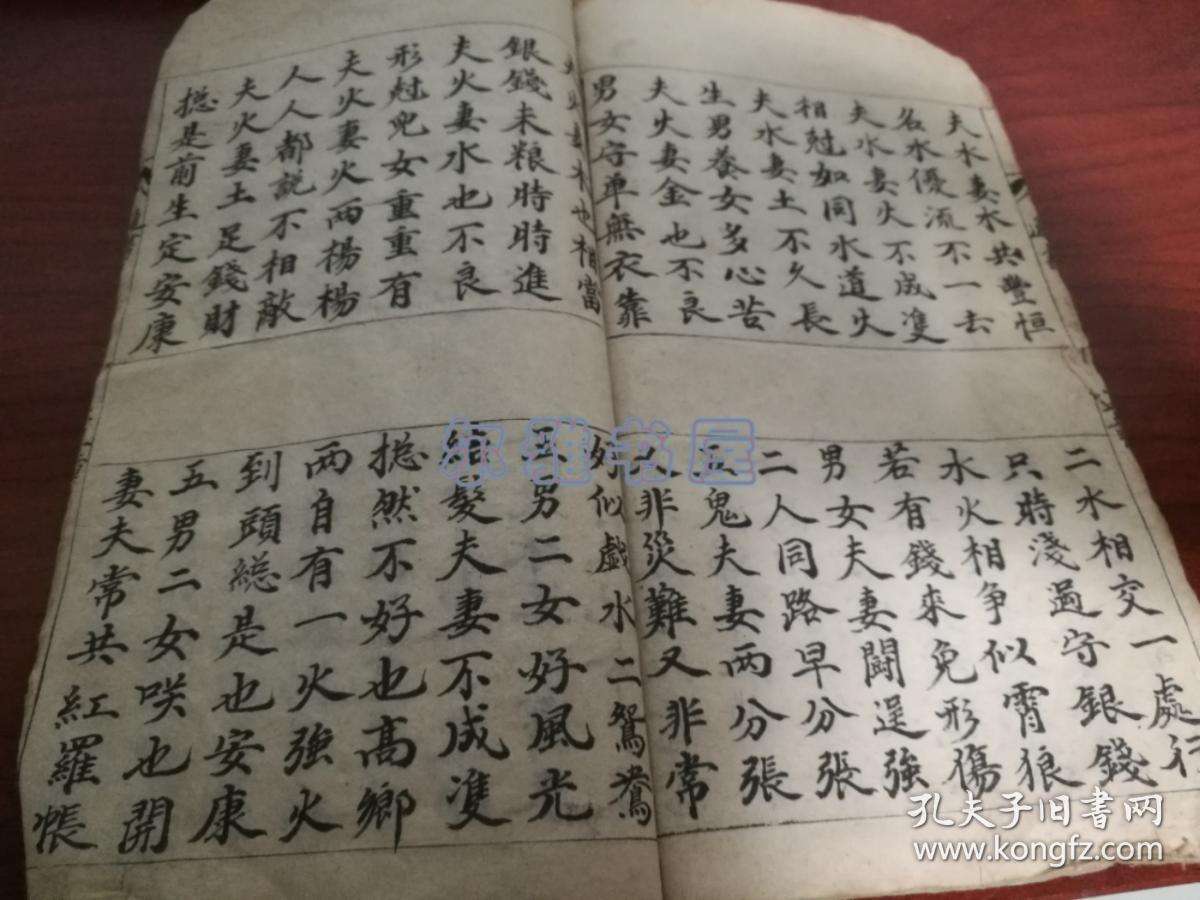 夫水妻水共豐恒
名水優流不一去
夫水妻火不成逄
相尅如同水道火
夫水妻土不久長
生男養女多心苦
夫火妻金也不良
男女守单無衣靠
二水相交一處行
只時淺過守銀錢
水火相争似霄狼
若有錢來免形傷
男女夫妻闘逞強
二人同路早分張
五鬼夫妻两分張
又非災難又非常
也相當
銀錢未粮時時進
夫火妻水也不良
形尅兒女重重有
夫火妻火两楊楊
人人都説不相敵
夫火妻土足錢財
捴是前生定安康
好似戲水二鴛鴦
五男二女好風光
結髮夫妻不成隻
捴然不好也高鄉
两自有一火強火
到頭總是也安康
五男二女咲也開
妻夫常共紅羅帳
尔雅书屋
孔夫子旧书网
www.kongfz.com